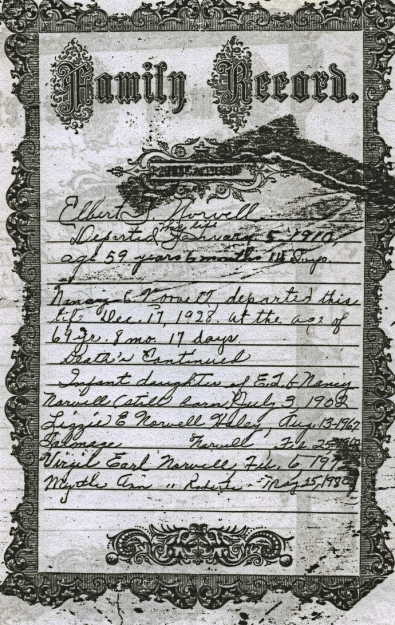 Family Record.
Elbert T. Norvell
Departed this life
January 5 1910,
age 59 years 6 months 14 Days
Nancy E Norvell, departed this
life Dec. 17, 1928. at the age of
69 yr. 8 mo. 17 days.
Death's Continued
Infant daughter of E.T. & Nancy
Norvell (still born) July 3, 1902
Lizzie E Norvell Haley, Aug. 13-1967
Norvell Feb 25
Virgil Earl Norvell, Feb. 6, 197
Myrtle Ann " Roberts - May 25, 198